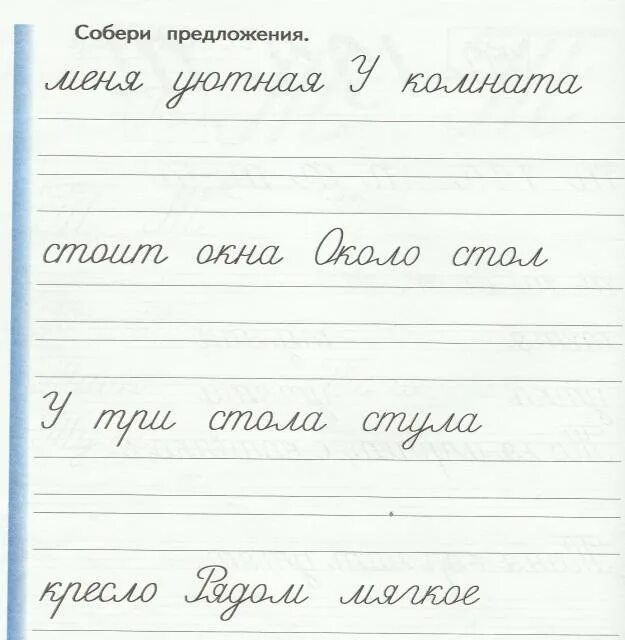 Собери предложения.
меня уютная У комната
стоит окна Около стол
У три стола стула
кресло Рядом мягкое